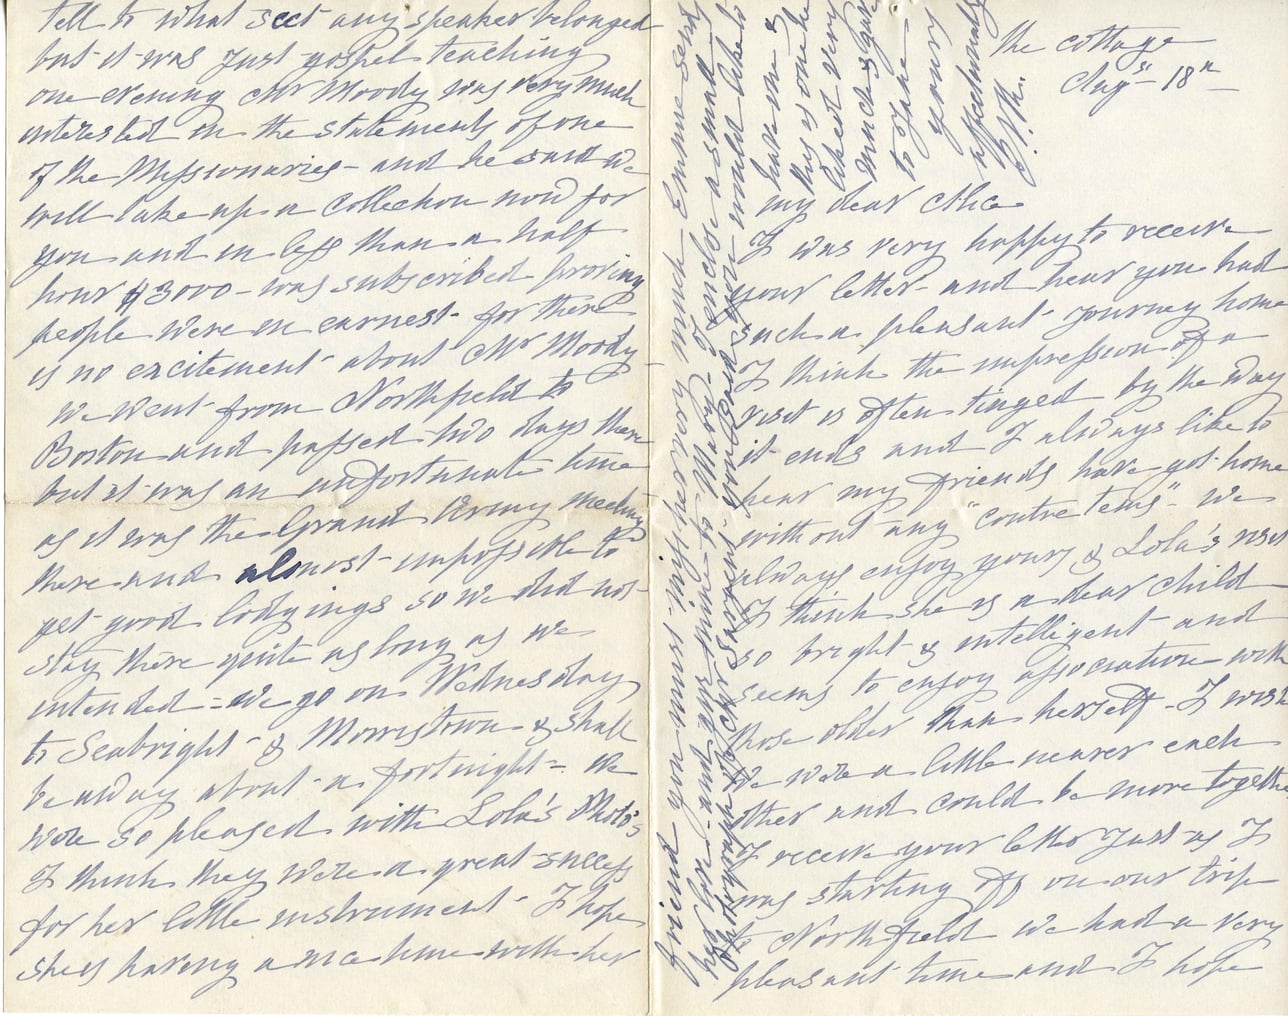 The Cottage
Augst 18th
My dear Alice
I was very happy to receive
your letter and hear you had
such a pleasant journey home
I think the impression of a
visit is often tinged by the way
it ends and I always like to
hear my friends have got home
without any "contre tems" - we
always enjoy yours & Lola's visit
I think she is a dear child
so bright & intelligent and
seems to enjoy association with
those older than herself - I wish
we were a little nearer each
other and could be more together
I receive your letter just as I
was starting off on our trip
to Northfield we had a very
pleasant time and I hope
tell to what sect any speaker belonged
but it was just gospel teaching
one evening Mr Moody was very much
interested in the statements of one
of the Missionaries - and he said we
will take up a collection now for
you and in less than a half
hour $3000 - was subscribed proving
people were in earnest - for there
is no excitement about Mr Moody -
We went from Northfield to
Boston and passed two days there
but it was an unfortunate time
as it was the Grand Army meeting
there and almost impossible to
get good lodgings so we did not
stay there quite as long as we
intended = we go on Wednesday
to Seabright - & Morristown & shall
be away about a fortnight = We
were so pleased with Lola's Photo's
I think they were a great success
for her little instrument - I hope
she is having a nice time with her
friend you must miss her very much Emmie sends
her love - and give mine to Mary - I enclose a small
photograph of Mr Sargent you said you would like to
have one &
this is one he
liked very
much &
to Jane
yours
affectionately